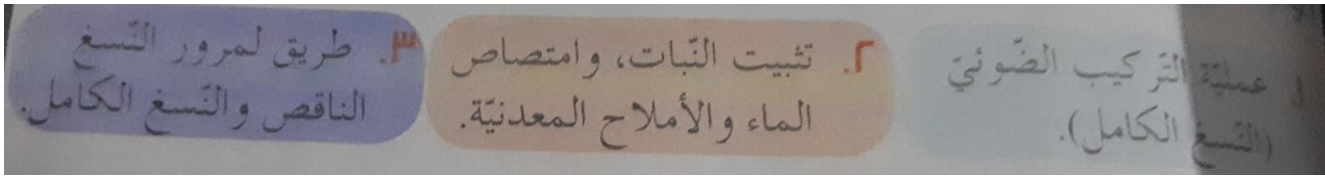 ١. عمليّة التّركيب الضّوئيّ
(النّسغ الكامل).
٢. تثبيت النّبات، وامتصاص
الماء والأملاح المعدنيّة.
٣. طريق لمرور النّسغ
الناقص والنّسغ الكامل.